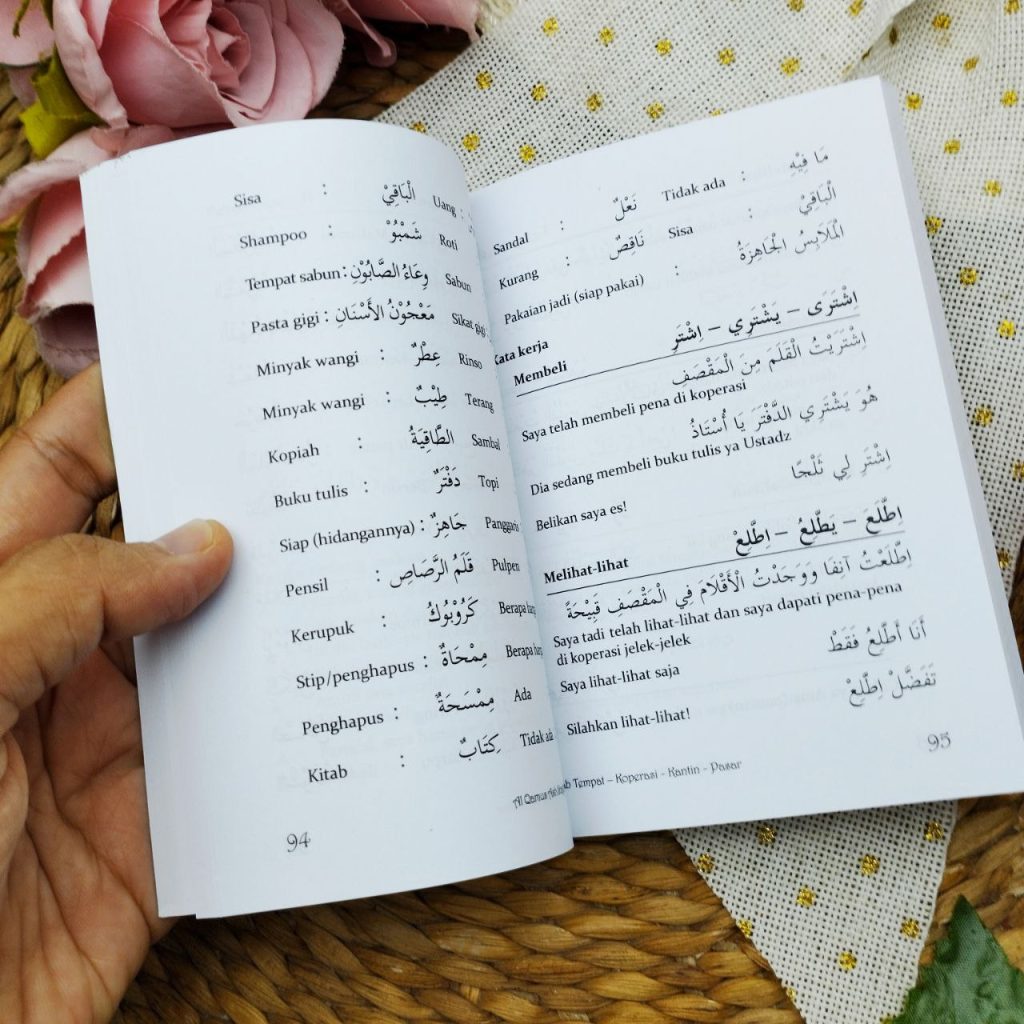 Sisa : الْبَاقِيْ Uang :
Shampoo : شَمْبُوْ Roti
Tempat sabun : وِعَاءُ الصَّابُوْنِ Sabun
Pasta gigi : مَعْجُوْنُ الأَسْنَانِ Sikat gigi
Minyak wangi : عِطْرٌ Rinso
Minyak wangi : طِيْبٌ Terang
Kopiah : الطَّاقِيَةُ Sambal
Buku tulis : دَفْتَرٌ Topi
Siap (hidangannya) : جَاهِزٌ
Pensil : قَلَمُ الرَّصَاصِ Pulpen
Kerupuk : كَرُوْبُوكُ Berapa
Stip/penghapus : مِمْحَاةٌ Berapa
Penghapus : مِمْسَحَةٌ Ada
Kitab : كِتَابٌ Tidak ada
94
Sandal : نَعْلٌ Tidak ada : مَا فِيْهِ
Kurang : نَاقِصٌ Sisa : الْبَاقِيْ
Pakaian jadi (siap pakai) : الْمَلَابِسُ الْجَاهِزَةُ
Kata kerja
Membeli اِشْتَرَى – يَشْتَرِي – اِشْتَرِ
اِشْتَرَيْتُ الْقَلَمَ مِنَ الْمَقْصَفِ
Saya telah membeli pena di koperasi
هُوَ يَشْتَرِي الدَّفْتَرَ يَا أُسْتَاذُ
Dia sedang membeli buku tulis ya Ustadz
اِشْتَرِ لِي ثَلْجًا
Belikan saya es!
Melihat-lihat اِطَّلَعَ – يَطَّلِعُ – اِطَّلِعْ
اِطَّلَعْتُ آنِفَا وَوَجَدْتُ الْأَقْلَامَ فِي الْمَقْصَفِ قَبِيْحَةً
Saya tadi telah lihat-lihat dan saya dapati pena-pena
di koperasi jelek-jelek
أَنَا أَطَّلِعُ فَقَطْ
Saya lihat-lihat saja
تَفَضَّلْ اِطَّلِعْ
Silahkan lihat-lihat!
Al Qamus Tempat – Koperasi - Kantin - Pasar
95